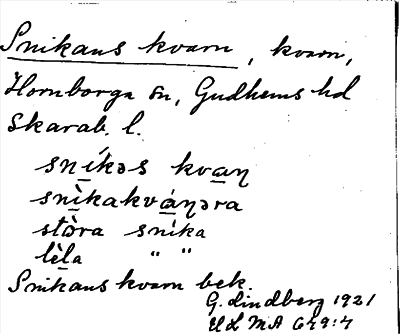 Snikans kvarn, kvarn,
Hornborga sn, Gudhems hd
Skarab. l.
sníkəs kvaꞑ
snìkakváꞑəra
stòra sníka
lèla " "
Snikans kvarn bek.
G. Lindberg 1921
ULMA 649:7